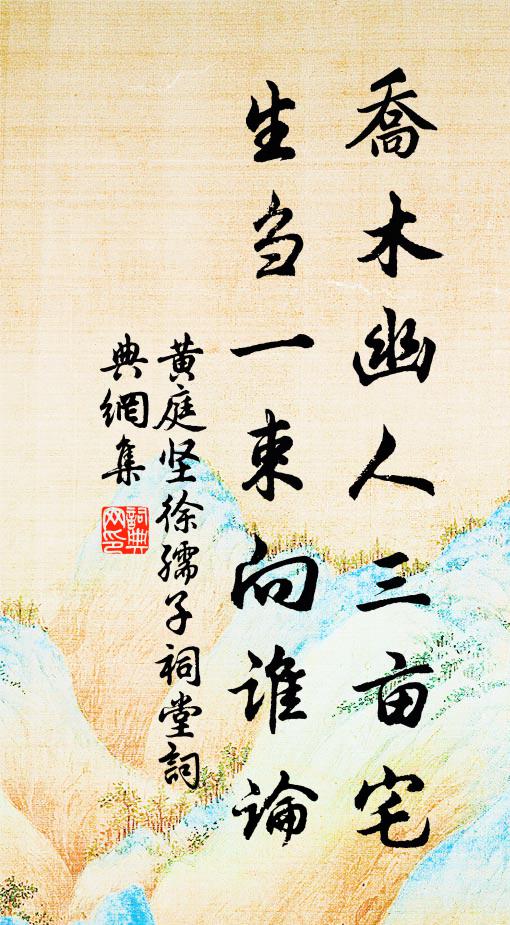 喬木幽人三亩宅
生刍一束向谁論
黄庭坚徐孺子祠堂詞
典網集
詞典
网印